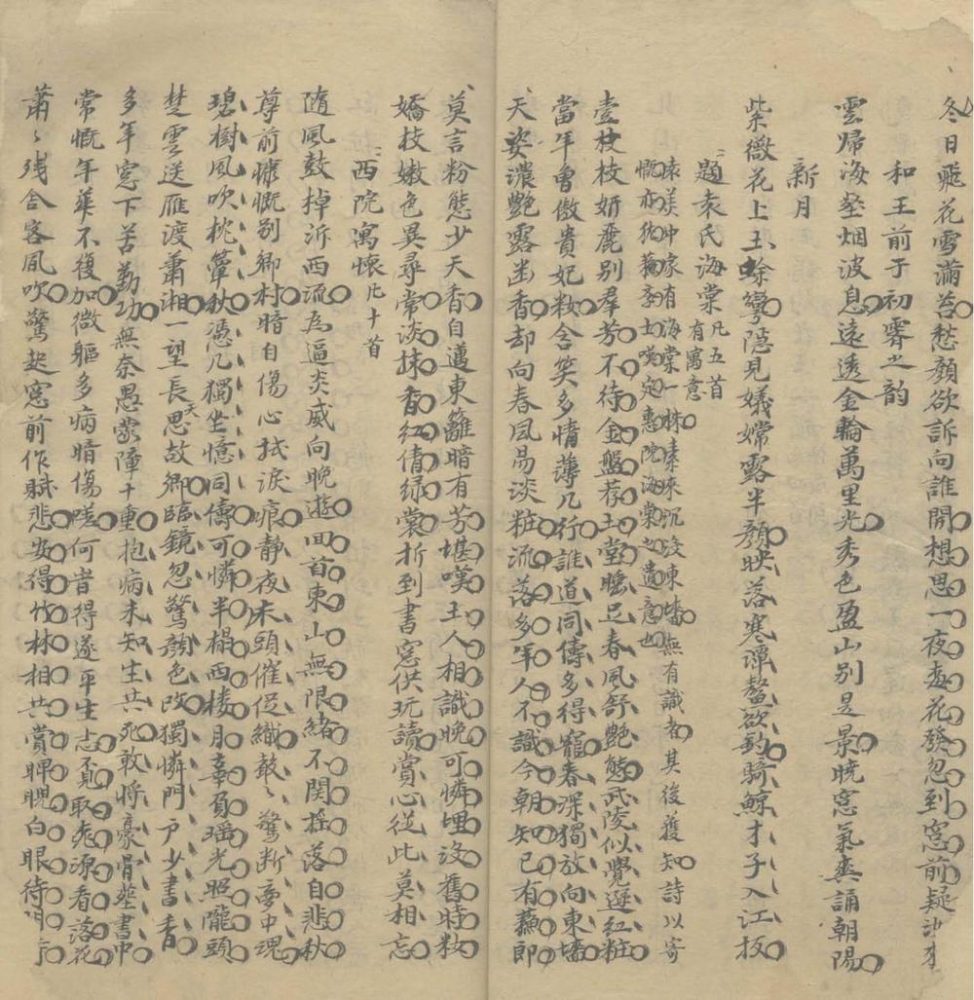 冬日飛花雪滿苔愁顏欲訴向誰開想思一夜
花發忽到窓前疑
和王前于初霽之韵
雲歸海壑烟波息遠透金輪萬里光秀色盈山別是景曉窓氣爽誦朝陽
新月
紫薇花上玉蜍彎隱見嫦露半顏映落寒潭鰲欲釣騎鯨才子入江扳
題袁氏海棠凡五首有寓意
袁美中家有海棠一株素來沉沒東墻無有識者其後獲知詩以寄
慨亦猶蘇文士嘆定惠院海棠之遺意也
壹枝枝妍麗別羣芳不待金盤荐玉堂曉足春風舒艷態武陵似覺遜紅粧
當年曾傲貴妃粧含笑多情薄几行誰道同儔多得寵春深獨放向東墻
天姿濃艷露出香却向春風昜淡粧流落多年人不識今朝知已有蘓郎
莫言粉態少天香自遶東籬暗有芳堪嘆玉人相識晚可憐埋沒舊時粧
嬌枝嫩色異尋常淡抹香紅倩绿裳折到書窓供玩讀賞心從此莫相忘
西院寓懷凡十首
随風鼓掉泝西流為逼炎威向晚遊回首東山無限緒不関摇落自悲秋
尊前慷慨別鄉村暗自傷心拭淚痕静夜床頭催促織鼓〻驚断夢中魂
碧樹風吹枕簟秋憑几獨坐憶同儔可憐半榻西楼月辜負瑶光照隴頭
楚雲送雁渡蕭湘一望長天思故鄉臨鏡忽驚顏色改獨憐門户少書香
多年窓下苦勤功無奈愚蒙障十重抱病未知生共死敢将豪骨塟書中
常慨年華不復加微軀多病暗傷嗟何昔得遂平生志覓取桃源看落花
萧〻残舍客風吹驚起窓前作賦悲安得竹林相共賞睥睨白眼待